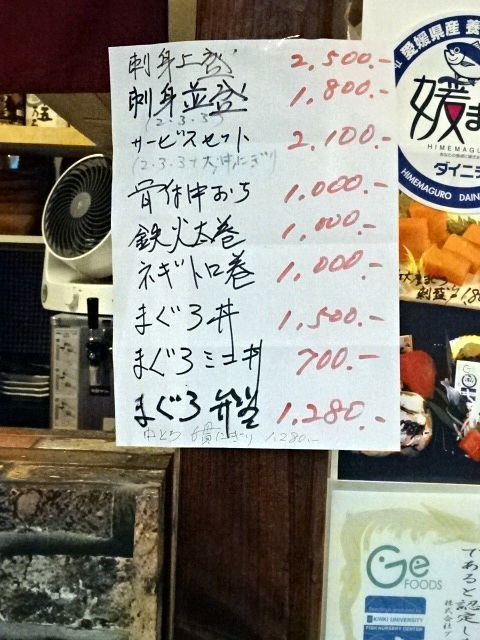 刺身上盛 2,500.-
刺身並盛 1,800.-
(2.3.3)
サービスセット 2,100.-
骨付中おち 1,000.-
鉄火太巻 1,000.-
ネギトロ巻 1,000.-
まぐろ丼 1,500.-
まぐろミニ丼 700.-
まぐろ弁当 1,280.-
中とろ 1,280.-
愛媛県産 養
媛ま
HIMEMAGURO
ダイニチ
HIMEMAGURO DAIN
Ge
FOODS
KINKI UNIVERSITY
FISH NURSERY CENTER
であると認定し
株式会社